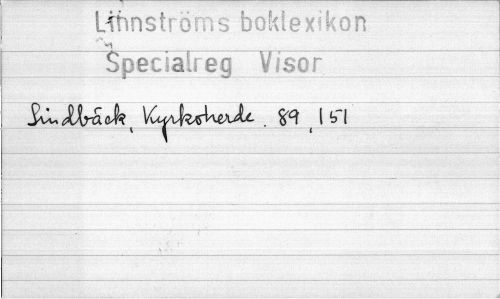 Linnströms boklexikon
Specialreg Visor
Lindbäck, Kyrkoherde. 89, 151